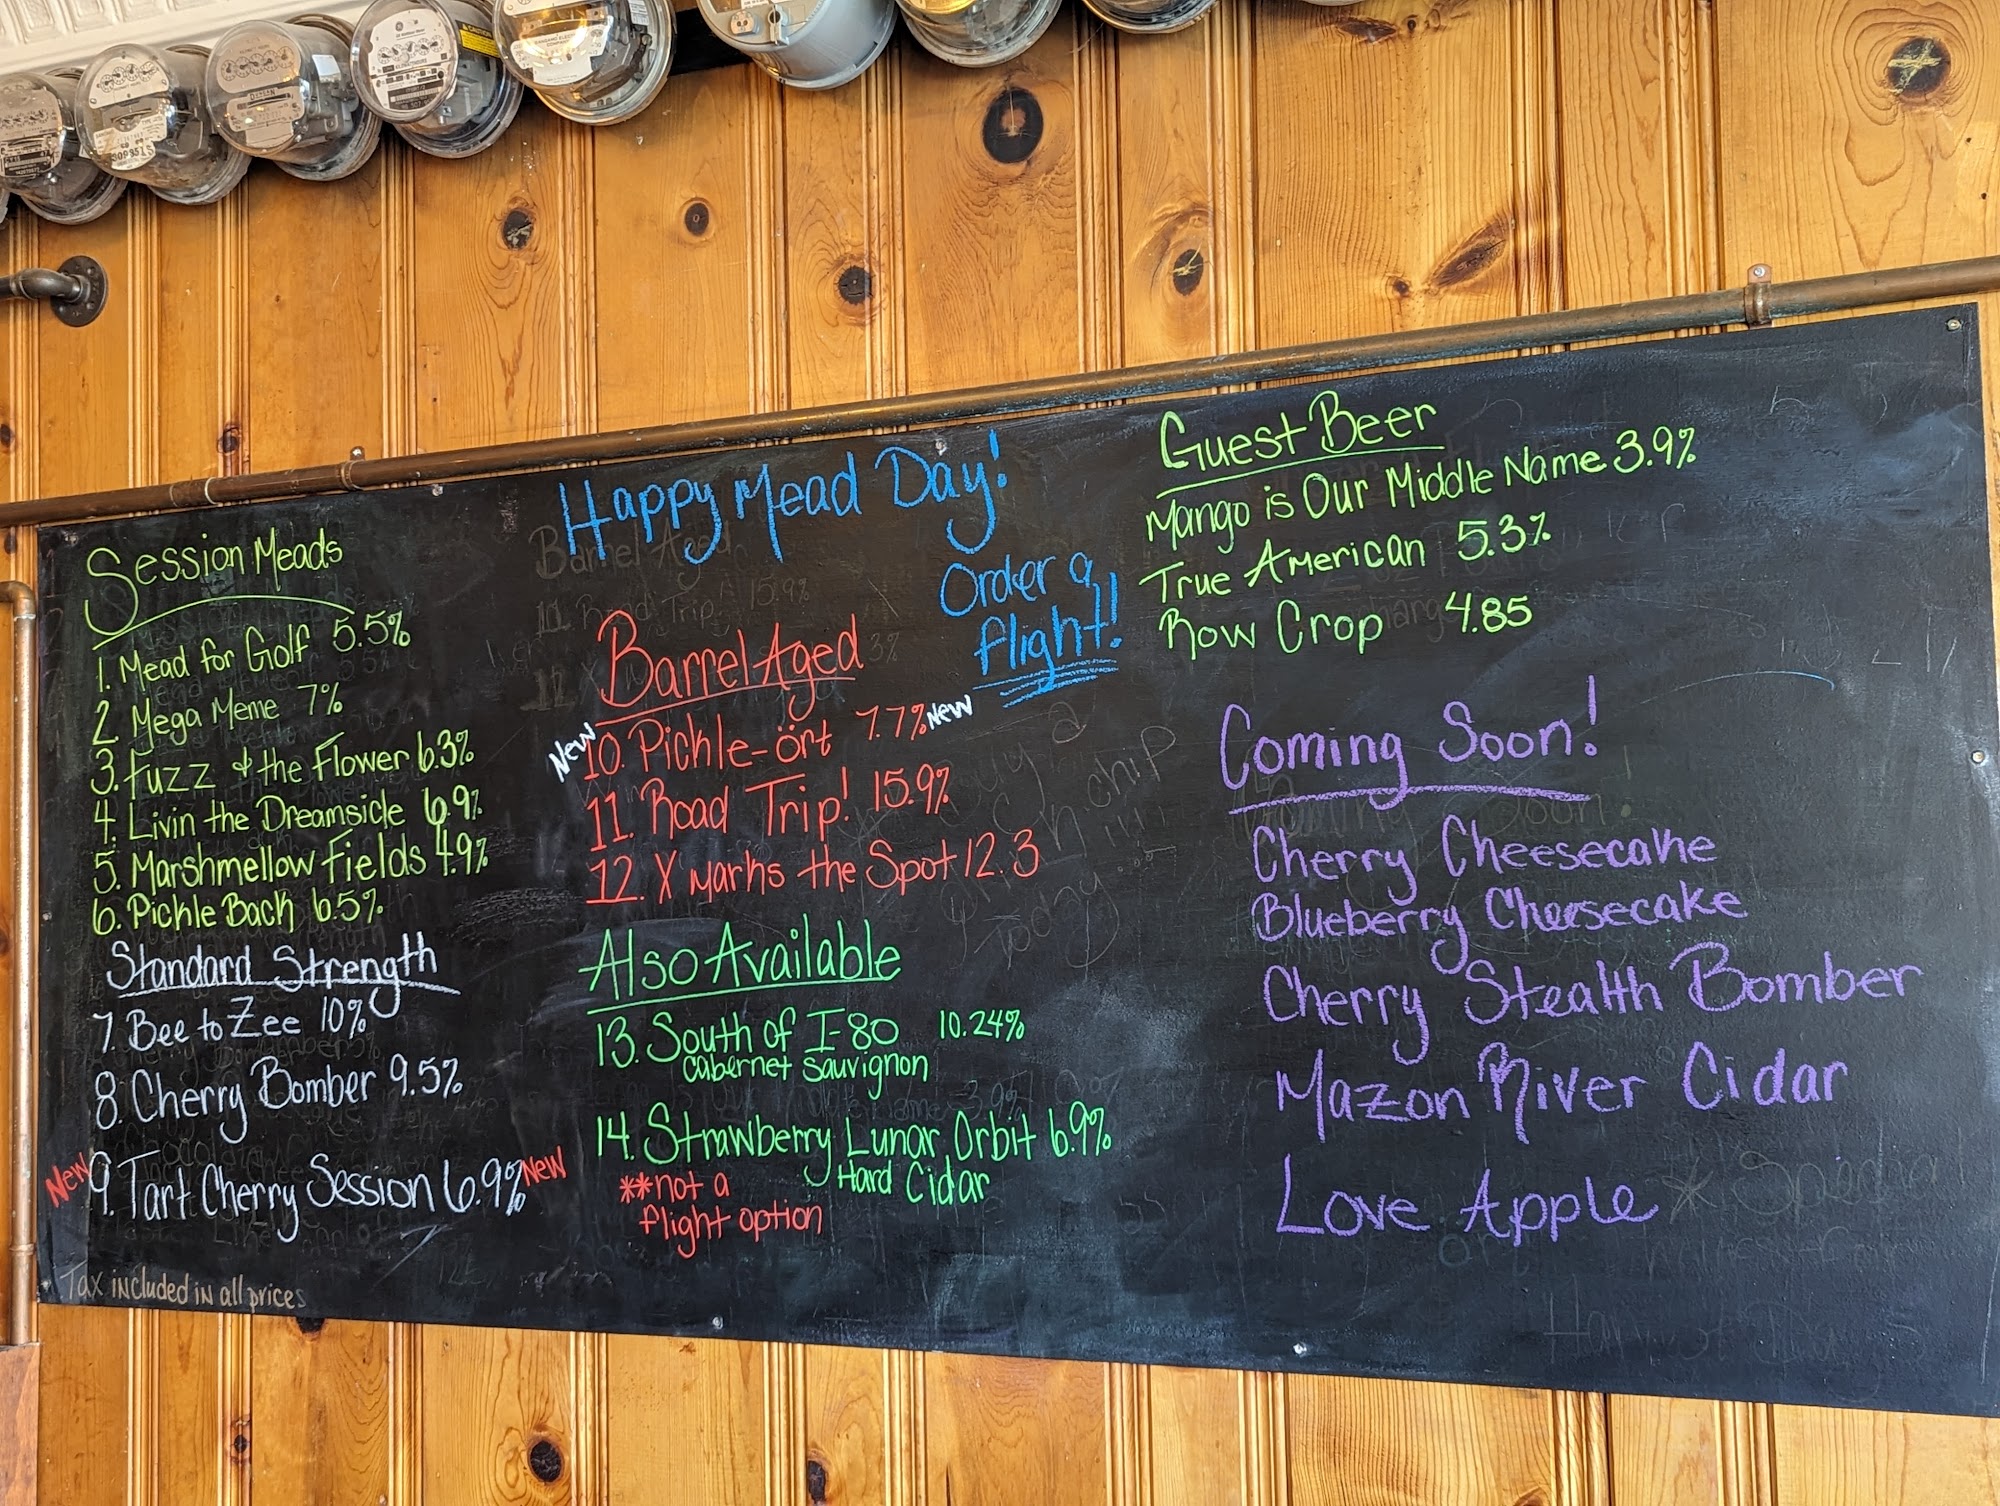 Session Meads
1. Mead for Golf 5.5%
2. Mega Meme 7%
3. Fuzz & the Flower 6.3%
4. Livin the Dreamsicle 6.9%
5. Marshmellow Fields 4.9%
6. Pickle Back 6.5%
Standard Strength
7. Bee to Zee 10%
8. Cherry Bomber 9.5%
New 9. Tart Cherry Session 6.9% New
Tax included in all prices
Happy Mead Day!
Order a
flight!
Barrel Aged
New 10. Pickle-ört 7.7% New
11. Road Trip! 15.9%
12. X Marks the Spot 12.3
Also Available
13. South of I-80 10.24%
Cabernet Sauvignon
14. Strawberry Lunar Orbit 6.9%
Hard Cidar
**not a
flight option
Guest Beer
Mango is Our Middle Name 3.9%
True American 5.3%
Row Crop 4.85
Coming Soon!
Cherry Cheesecake
Blueberry Cheesecake
Cherry Stealth Bomber
Mazon River Cidar
Love Apple